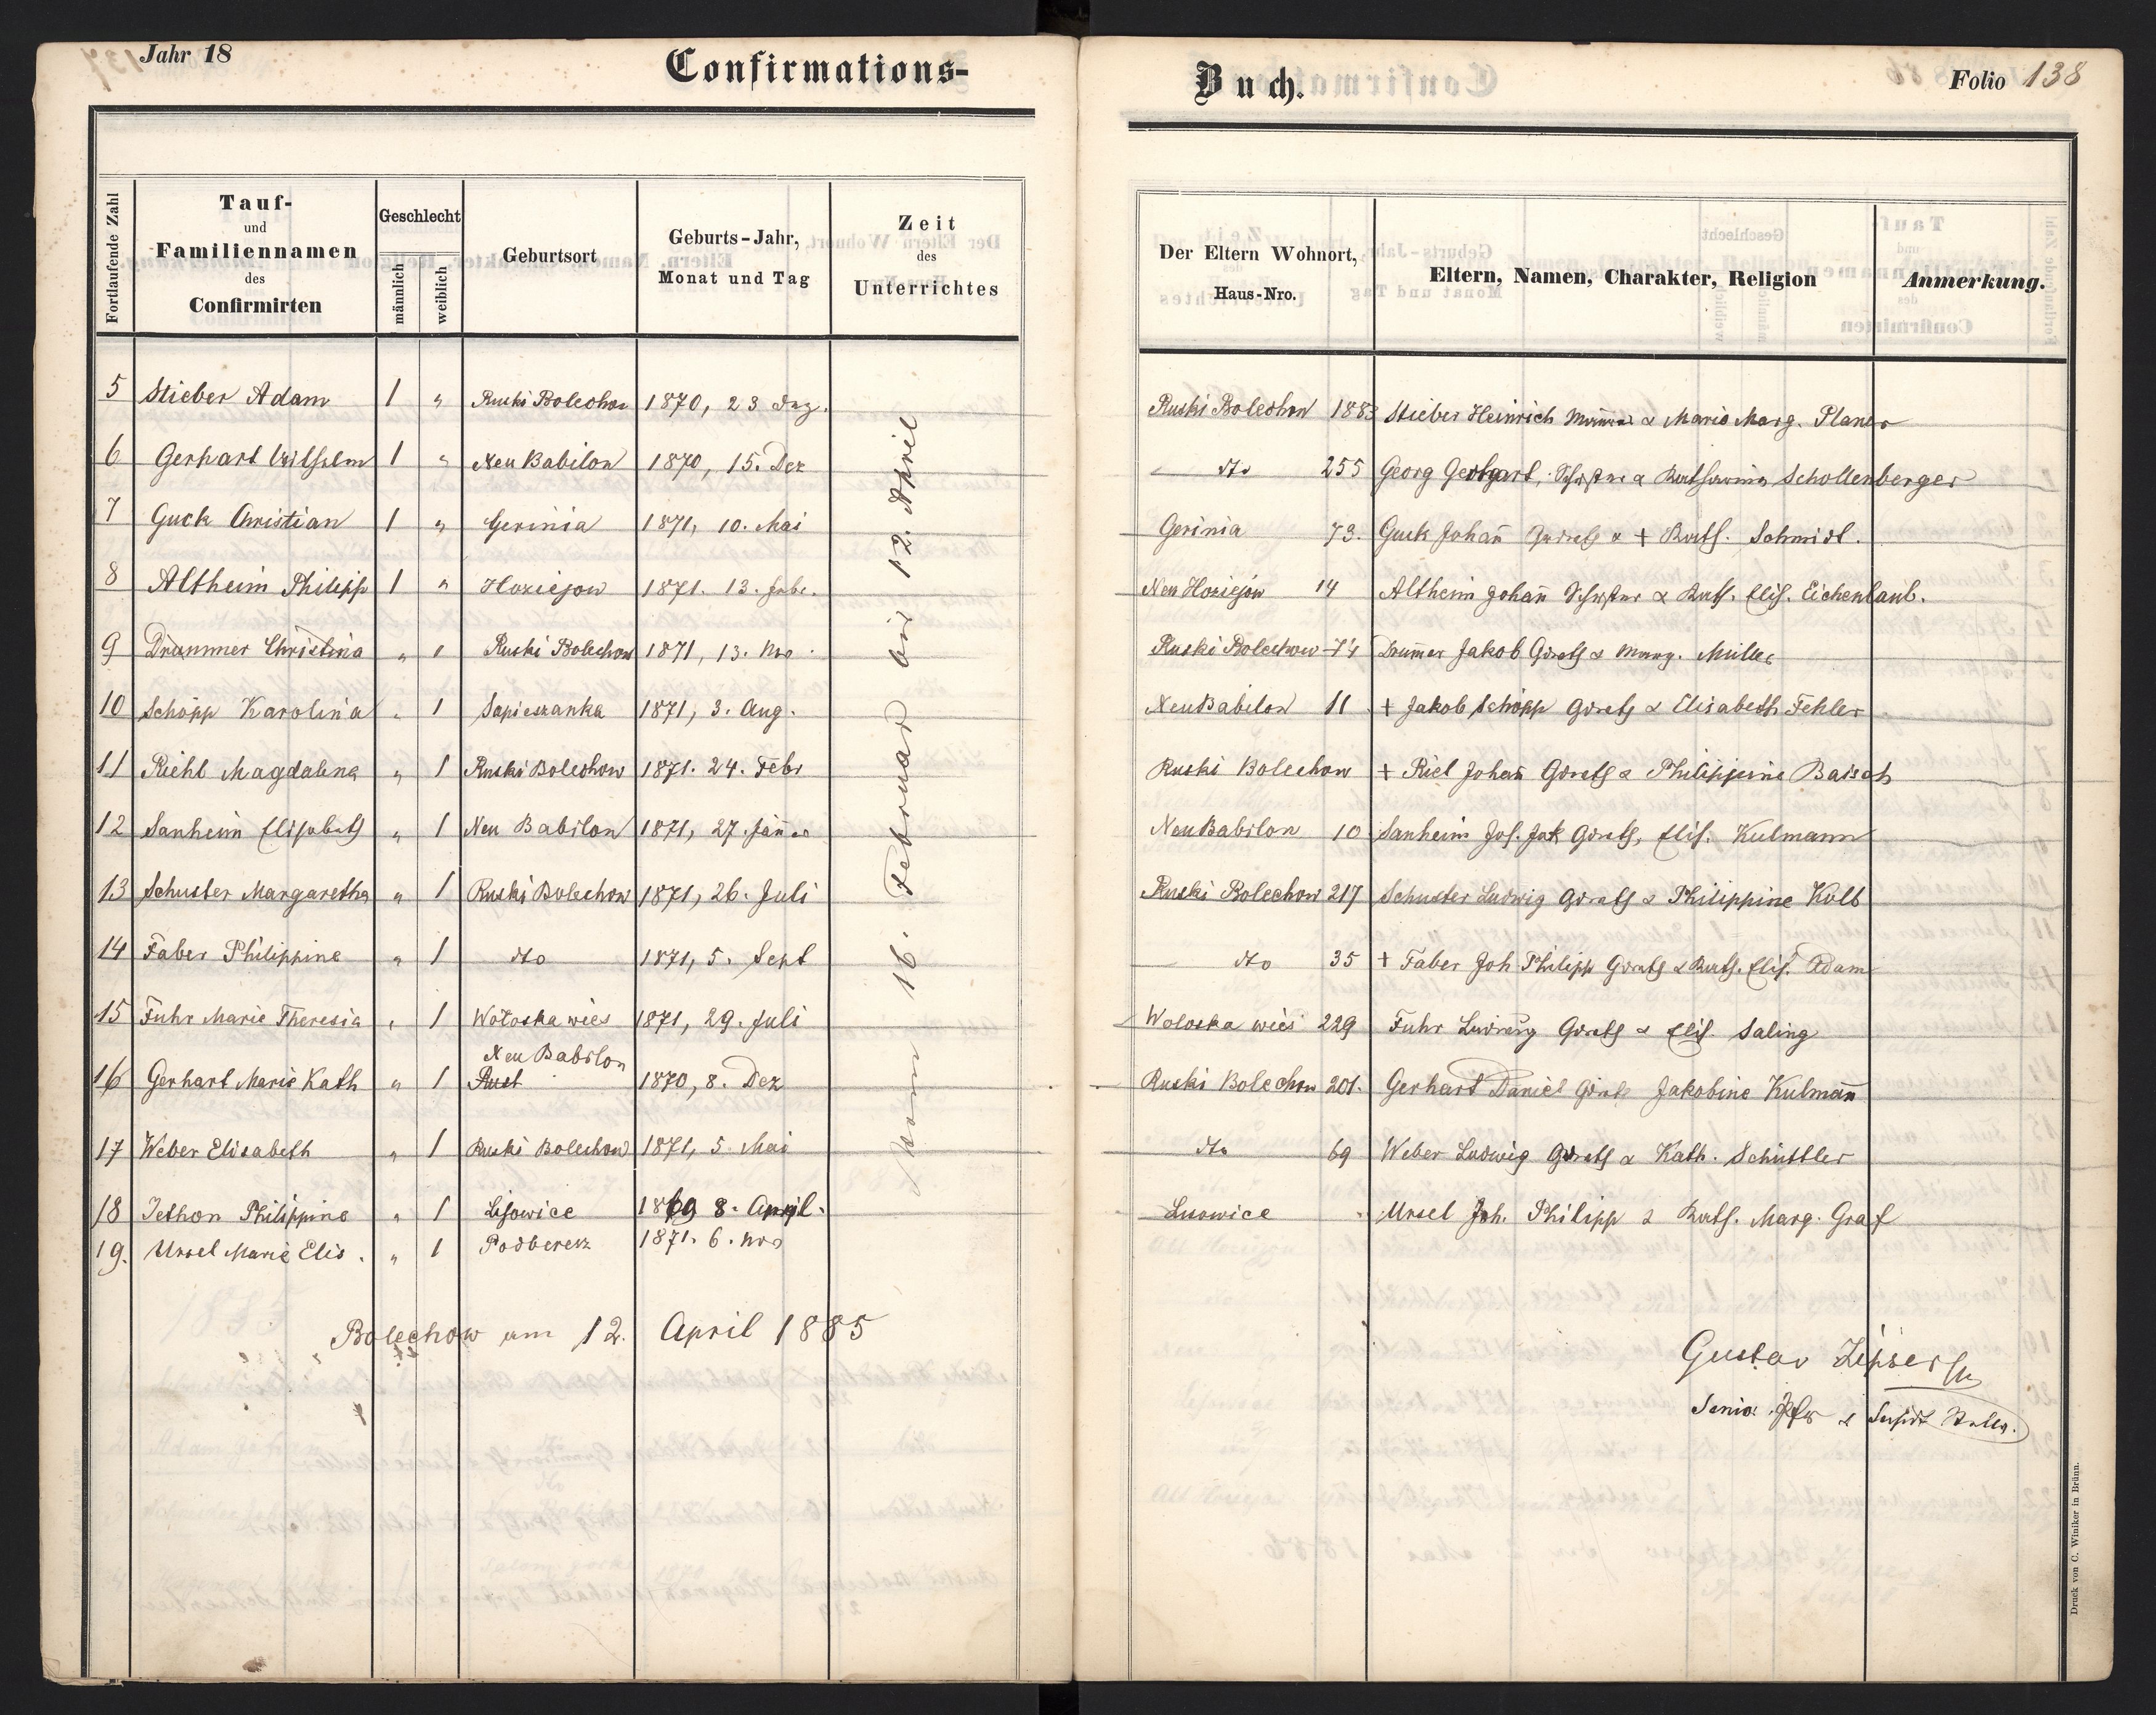 Jahr 18
Confirmations-
Buch.
Folio 138
Fortlaufende Zahl
Tauf-
und
Familiennamen
des
Confirmirten
Geschlecht
männlich
weiblich
Geburtsort
Geburts-Jahr,
Monat und Tag
Zeit
des
Unterrichtes
Der Eltern Wohnort,
Haus-Nro.
Eltern, Namen, Charakter, Religion
Anmerkung.
5 Stieber Adam 1 " Ruski Bolechow 1870, 23 Ruski Bolechow 188 Stieber Heinrich & Marie Marg. Planer
6 Gerhart Wilhelm 1 " Neu Babilon 1870, 15. Dez dto 255 Georg Gerhart, & Katharina Schollenberger
7 Guck Christian 1 " Gerinia 1871, 10. Mai Gerinia 73. Guck Johan̄ & + Kath. Schmidt.
8 Altheim Philipp 1 " Hoziejow 1871. 13. Febr. Neu Hoziejow 14 Altheim Johan̄ & Kath. Elis. Eichenlaub.
9 Drummer Christina " 1 Ruski Bolechow 1871, 13. Nov. Ruski Bolechow 74 Drum̄er Jakob Grdrth & Marg. Müller
10 Schöpp Karolina " 1 Sapieszanka 1871, 3. Aug. Neu Babilon 11 + Jakob Schöpp Grdrth & Elisabeth Fehler
11 Riehl Magdalena " 1 Ruski Bolechow 1871. 24. Febr Ruski Bolechow + Riel Johan̄ Grdrth & Philippine Baisch
12 Sanheim Elisabeth " 1 Neu Babilon 1871, 27. Jän̄er Neu Babilon 10 Sanheim Joh. Jak Grdrth, Elis. Kulmann
13 Schuster Margaretha " 1 Ruski Bolechow 1871, 26. Juli Ruski Bolechow 217 Schuster Ludwig Grdrth & Philippine Kolb
14 Faber Philippine " 1 dto 1871, 5. Sept dto 35 + Faber Joh Philipp Grdrth & Kath. Elis. Adam
15 Fuhr Marie Theresia " 1 Wołoska wieś 1871, 29. Juli Woloska wieś 229 Fuhr Ludwig Grdrth & Elis. Saling
Neu Babilon
16 Gerhart Marie Kath " 1 Rust 1870, 8. Dez Ruski Bolechow 201. Gerhart Daniel Grdrth Jakobine Kulman̄
17 Weber Elisabeth " 1 Ruski Bolechow 1871, 5. Mai dto 69 Weber Ludwig Grdrth & Kath. Schüttler
18 Jethon Philippine " 1 Lisowice 1869 8. April. Lisowice " Ursel Joh. Philipp & Kath. Marg. Graf
19. Ursel Marie Elis. " 1 Podberez 1871. 6. Nov
vom 16. Februar bis 12. April
Bolechow am 12. April 1885
Gustav Zipser
Senior Pfr &
Druck von C. Winiker in Brünn.